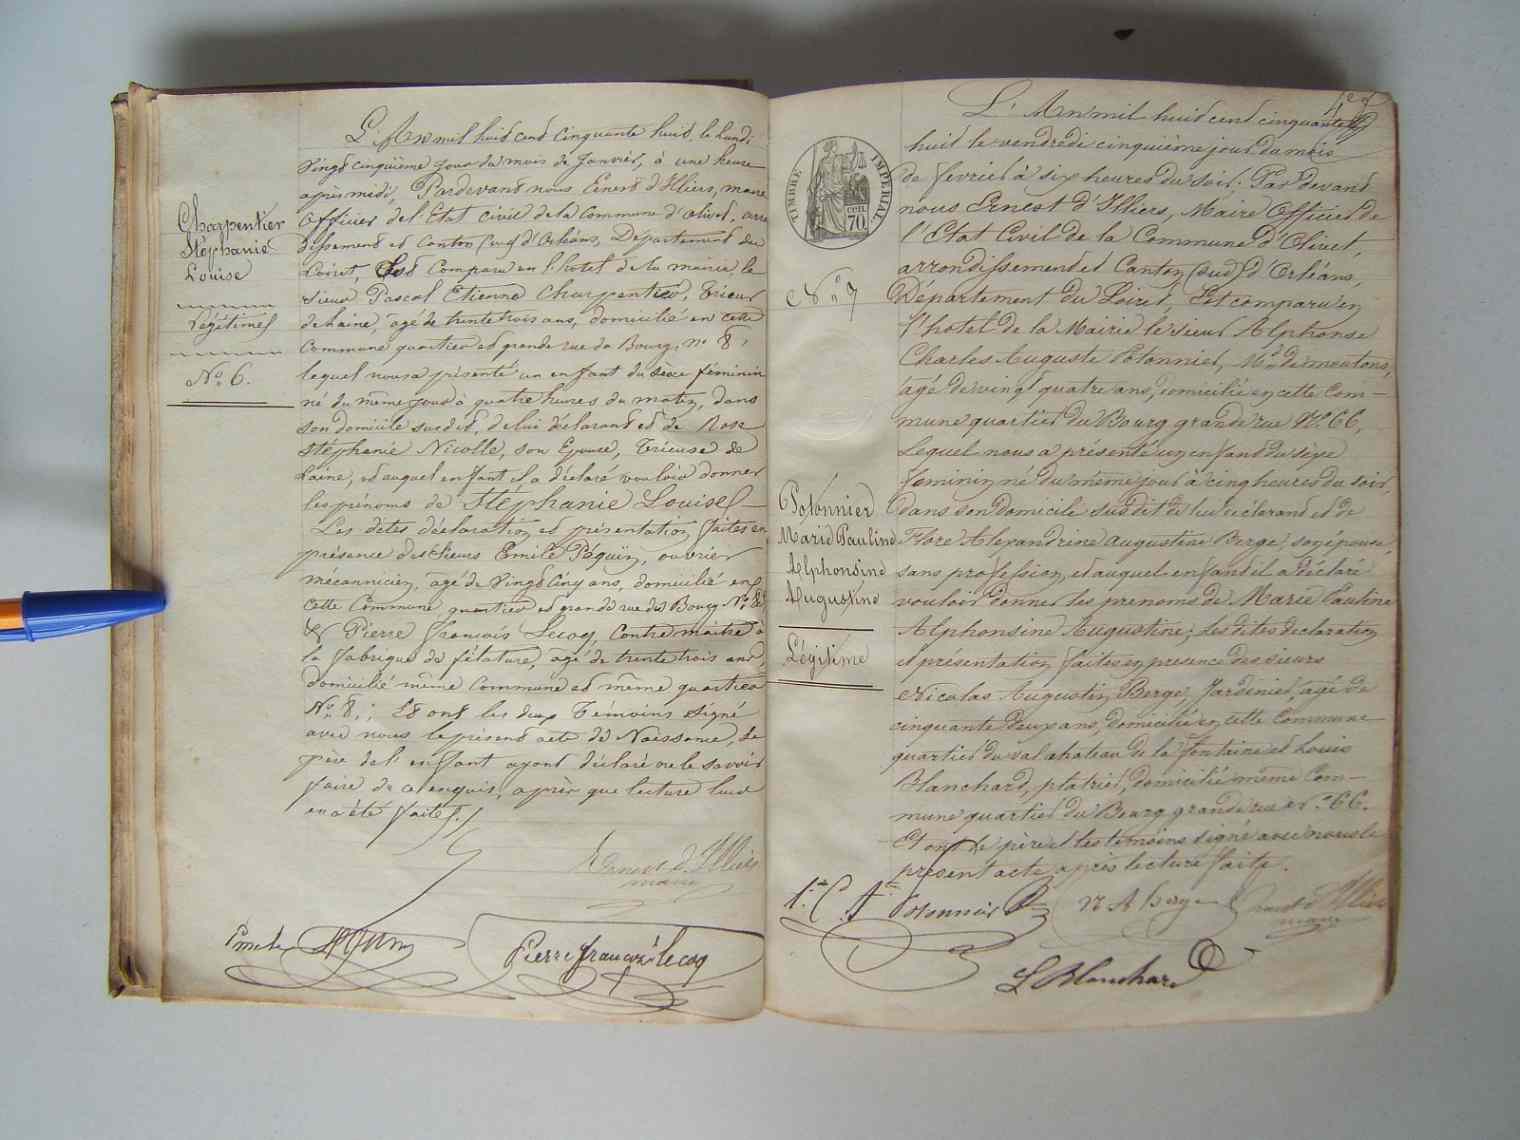 Charpentier
Stéphanie
Louise
Légitime
No. 6.
L'An mil huit cent cinquante huit, le lundi
vingt cinquième jour du mois de Janvier, à une heure
après midi, Pardevant nous Ernest d'Illiers, maire
officier de l'Etat civil de la Commune d'Olivet, arron
dissement et Canton (sud) d'Orléans, Département du
Loiret, Est comparu en l'hotel de la mairie, le
sieur Pascal Etienne Charpentier, trieur
de laine, agé de trente trois ans, domicilié en cette
Commune quartier et grande rue du Bourg, no 8,
lequel nous a présenté un enfant du sexe féminin
né du même jour à quatre heures du matin, dans
son domicile susdit, de lui déclarant et de Rose
Stéphanie Nicolle, son Epouse, Trieuse de
Laine, et auquel enfant il a déclaré vouloir donner
les prénoms de Stéphanie Louise
Les dites déclaration et présentation faites en
présence des sieurs Emile Péguin, ouvrier
mécannicien, agé de vingt cinq ans, domicilié en
cette Commune quartier et grande rue du Bourg No 8
& Pierre françois Lecoq, Contre maître à
la fabrique de filature, agé de trente trois ans,
domicilié même Commune et même quartier
No. 8,; Et ont les deux Témoins signé
avec nous le présent acte de Naissance, le
père de l'enfant ayant déclaré ne le savoir
faire de ce enquis, après que lecture leur
en a été faite.
Ernest d'Illiers
maire
Emile Péguin
Pierre françois lecoq
TIMBRE IMPERIAL
70
No 7
Potonnier
Marie Pauline
Alphonsine
Augustine
Légitime
L'An mil huit cent cinquante
huit le vendredi cinquième jour du mois
de fevrier à six heures du soir. Par devant
nous Ernest d'Illiers, Maire Officier de
l'Etat Civil de la Commune d'Olivet,
arrondissement et Canton (sud) d'Orléans,
Département du Loiret, Est comparu en
l'hotel de la Mairie le sieur Alphonse
Charles Auguste Potonnier, Md. de moutons,
agé de vingt quatre ans, domicilié en cette Com-
mune quartier du Bourg grande rue No. 66,
Lequel nous a présenté un enfant du sexe
feminin né du même jour à cinq heures du soir,
dans son domicile susdit de lui déclarant et de
Flore Alexandrine Augustine Berge, son épouse,
sans profession, et auquel enfant il a déclaré
vouloir donner les prenoms de Marie Pauline
Alphonsine Augustine; Les dites declaration
et présentation faites en presence des sieurs
Nicolas Augustin Berge, Jardinier, agé de
cinquante deux ans, domicilié en cette Commune
quartier du val chateau de la fontaine et Louis
Blanchard, platrier, domicilié même Com-
mune quartier du Bourg grande rue No. 66.
Et ont le père et les temoins signé avec nous le
présent acte après lecture faite.
A. C. Ate Potonnier
N A berge
Ernest d'Illiers
maire
L Blanchard